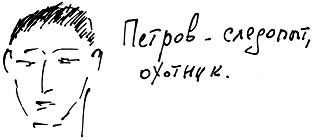 Петров - следопыт,
охотник.